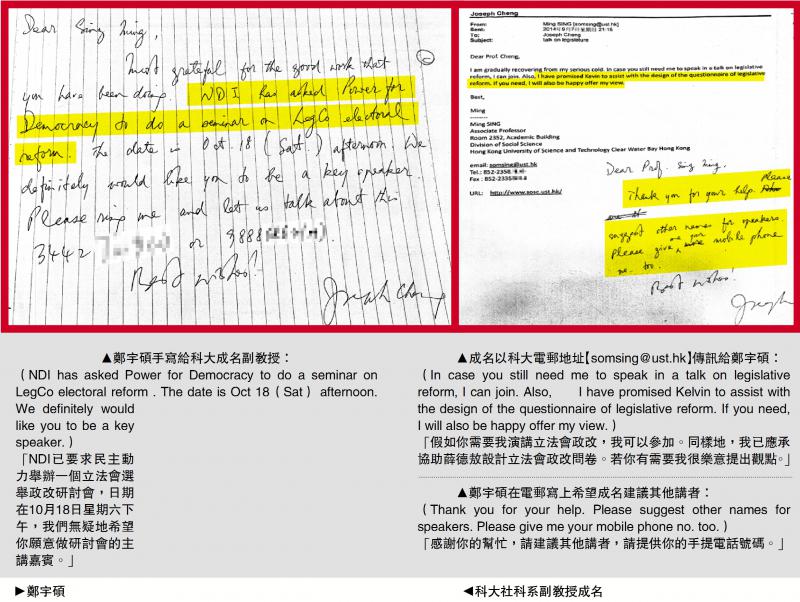 Dear Sing Ming,
Most grateful for the good work that
you have been doing. NDI has asked Power for
Democracy to do a seminar on LegCo electoral
reform. The date is Oct. 18 (Sat.) afternoon. We
definitely would like you to be a key speaker.
Please ring me and let us talk about this
3442 or 9888
Best wishes!
Joseph Cheng
Joseph Cheng
From: Ming SING [somsing@ust.hk]
Sent: 2014年9月7日星期日 21:16
To: Joseph Cheng
Subject: talk on legislature
Dear Prof. Cheng,
I am gradually recovering from my serious cold. In case you still need me to speak in a talk on legislative
reform, I can join. Also, I have promised Kevin to assist with the design of the questionnaire of legislative
reform. If you need, I will also be happy offer my view.
Best,
Ming
--------
Ming SING
Associate Professor
Room 2352, Academic Building
Division of Social Science
Hong Kong University of Science and Technology Clear Water Bay Hong Kong
email: somsing@ust.hk
Tel.: 852-2358
Fax : 852-2335
URL: http://www.sosc.ust.hk/
Dear Prof. Sing Ming,
Thank you for your help. Please
suggest other names for speakers.
Please give me your mobile phone
no. too.
Best wishes!
Joseph
▲鄭宇碩手寫給科大成名副教授：
（NDI has asked Power for Democracy to do a seminar on
LegCo electoral reform . The date is Oct 18（Sat）afternoon.
We definitely would
like you to be a key
speaker.）
「NDI已要求民主動
力舉辦一個立法會選
舉政改研討會，日期
在10月18日星期六下
午，我們無疑地希望
你願意做研討會的主
講嘉賓。」
▲成名以科大電郵地址【somsing@ust.hk】傳訊給鄭宇碩：
（In case you still need me to speak in a talk on legislative
reform, I can join. Also, I have promised Kelvin to assist with
the design of the questionnaire of legislative reform. If you need,
I will also be happy offer my view.）
「假如你需要我演講立法會政改，我可以參加。同樣地，我已應承
協助薛德敖設計立法會政改問卷。若你有需要我很樂意提出觀點。」
▲鄭宇碩在電郵寫上希望成名建議其他講者：
（Thank you for your help. Please suggest other names for
speakers. Please give me your mobile phone no. too.）
「感謝你的幫忙，請建議其他講者，請提供你的手提電話號碼。」
▶鄭宇碩
◀科大社科系副教授成名